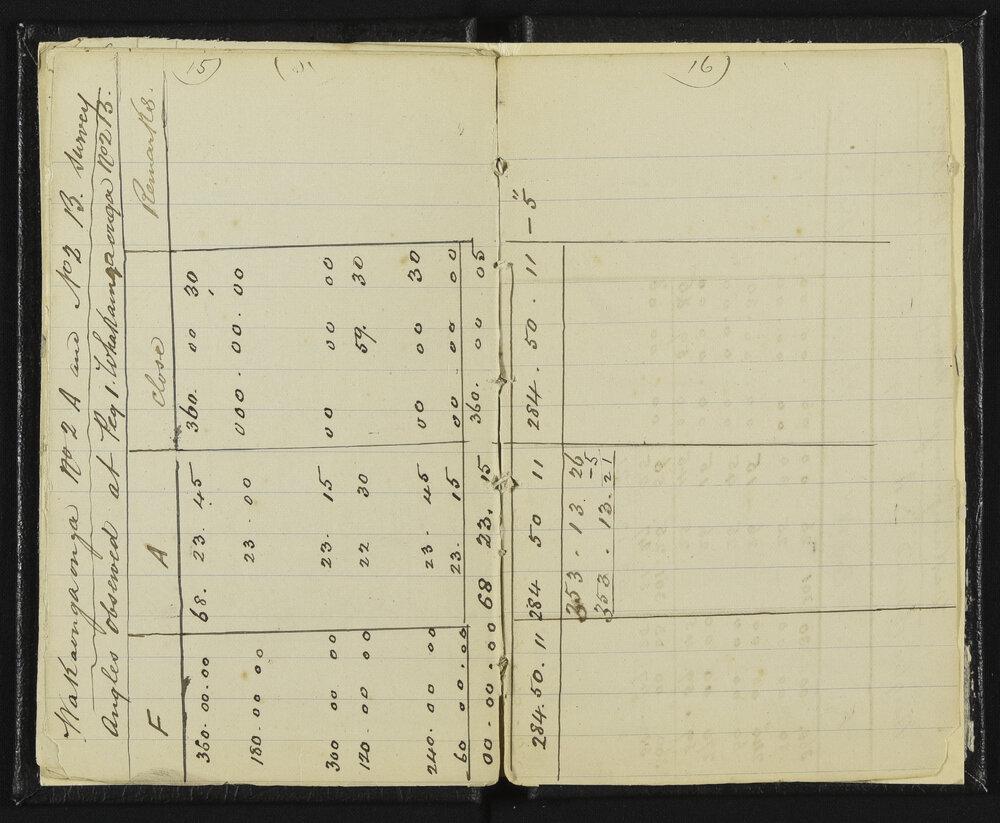 (15)
Wakaonga onga No 2 A and No 2 B. Survey
Angles observed at Peg 1. Whakaongaonga No 2 B.
F A Close Remarks.
360. 00. 00 68. 23. 45 360. 00 30
180. 00 00 23. 00 000. 00. 00
300 00 00 23. 15 00 00 00
120. 00 00 22 30 59. 30
240. 00 00 23. 45 00 00 30
60 0. 00 23. 15 00 00 00
00. 00. 00 68 23. 15 360. 00 05
(16)
284. 50. 11 284 50 11 284. 50. 11 - 5"
353. 13. 26
-5
353. 13. 21